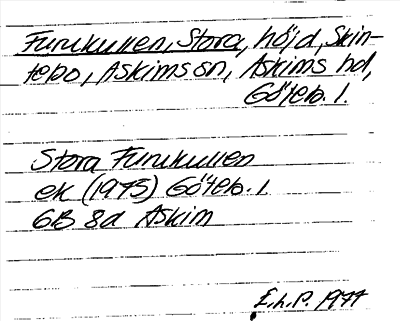 Furukullen, Stora, höjd, Skin-
tebo, Askims sn, Askims hd,
Göteb. l.
Stora Furukullen
ek (1975) Göteb. l.
6B 8a Askim
E.h.P. 1977